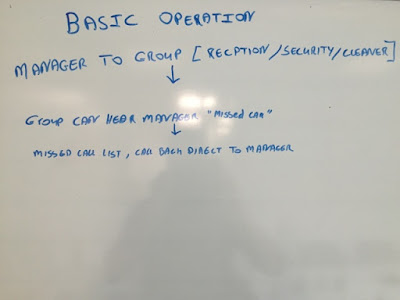 BASIC OPERATION
MANAGER TO GROUP [RECPTION/SECURITY/CLEAVER]
GROUP CAN HEAR MANAGER "MISSED CALL"
MISSED CALL LIST, CALL BACK DIRECT TO MANAGER